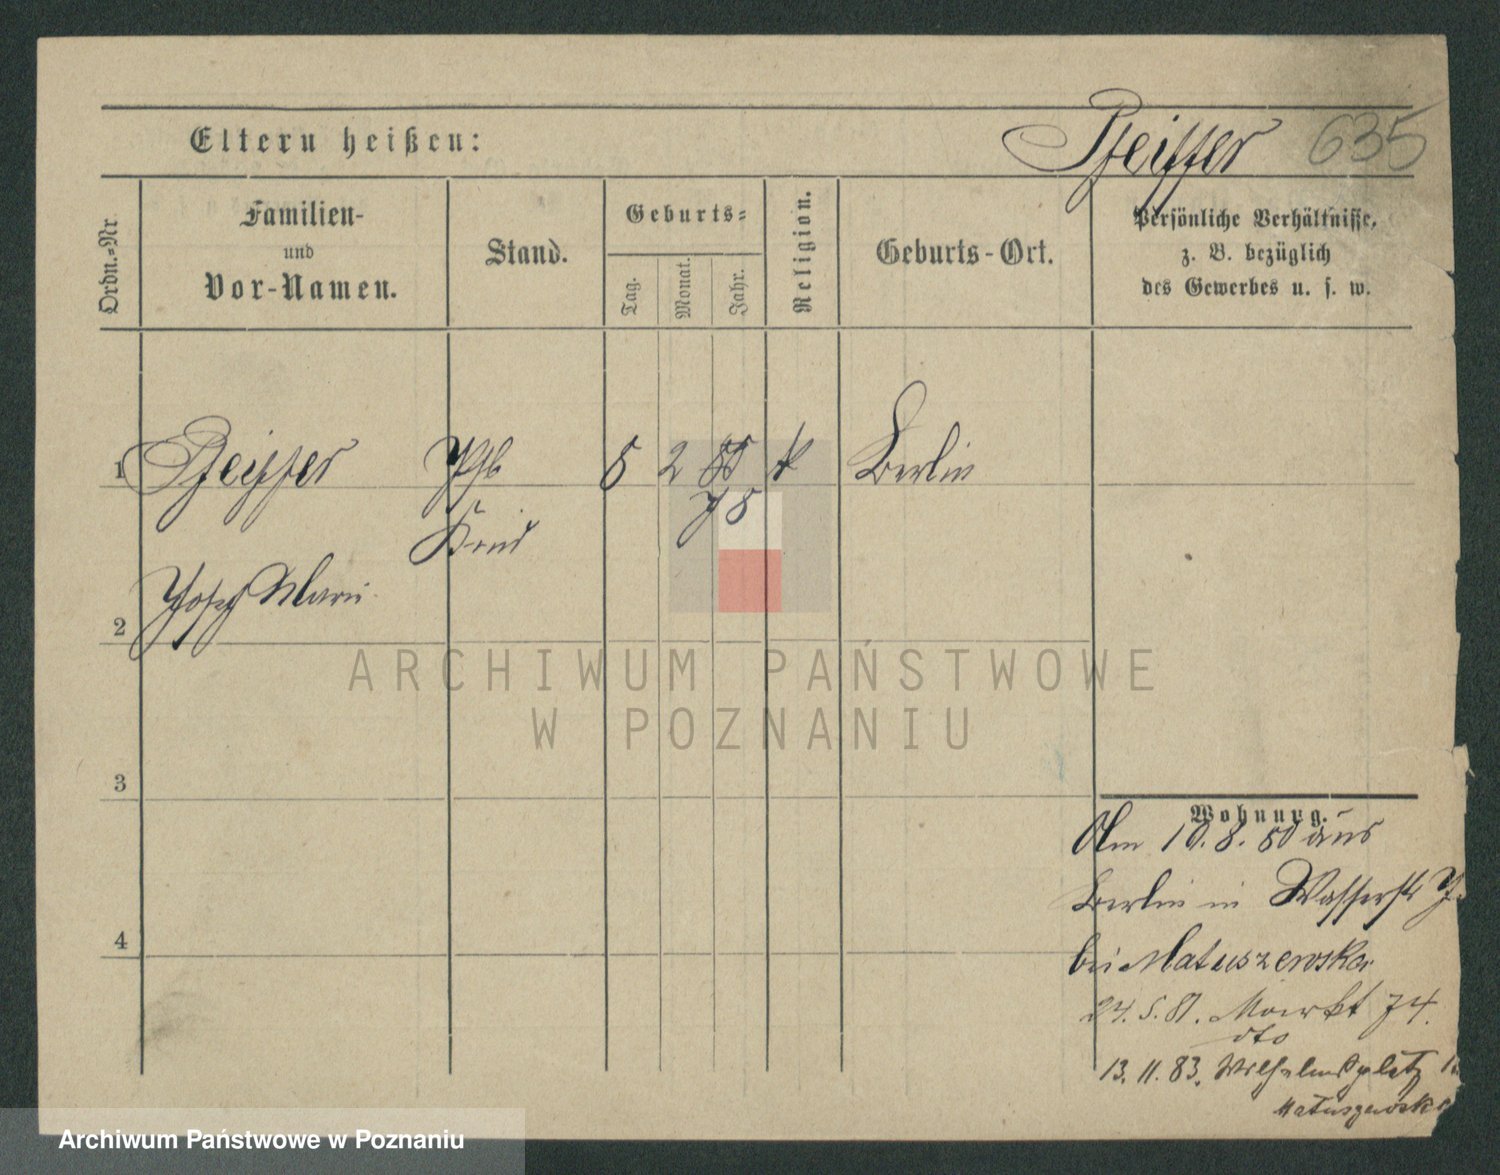 Eltern heißen:
Pfeiffer 635
Ordn.-Nr
Familien-
und
Vor-Namen.
Stand.
Geburts-
Tag.
Monat.
Jahr.
Religion.
Geburts-Ort.
Persönliche Verhältnisse,
z. B. bezüglich
des Gewerbes u. s. w.
1 Pfeiffer 8 2 80 k Berlin
78
Kind
2 Josef Marie
3
4
Wohnung.
Am 10. 8. 80 aus
Berlin in Wasserstr 7
bei Matuszewska
24. 5. 81. Markt 74.
dto
13. 11. 83. Wilhelmsplatz
Matuszewska
ARCHIWUM PAŃSTWOWE
W POZNANIU
Archiwum Państwowe w Poznaniu